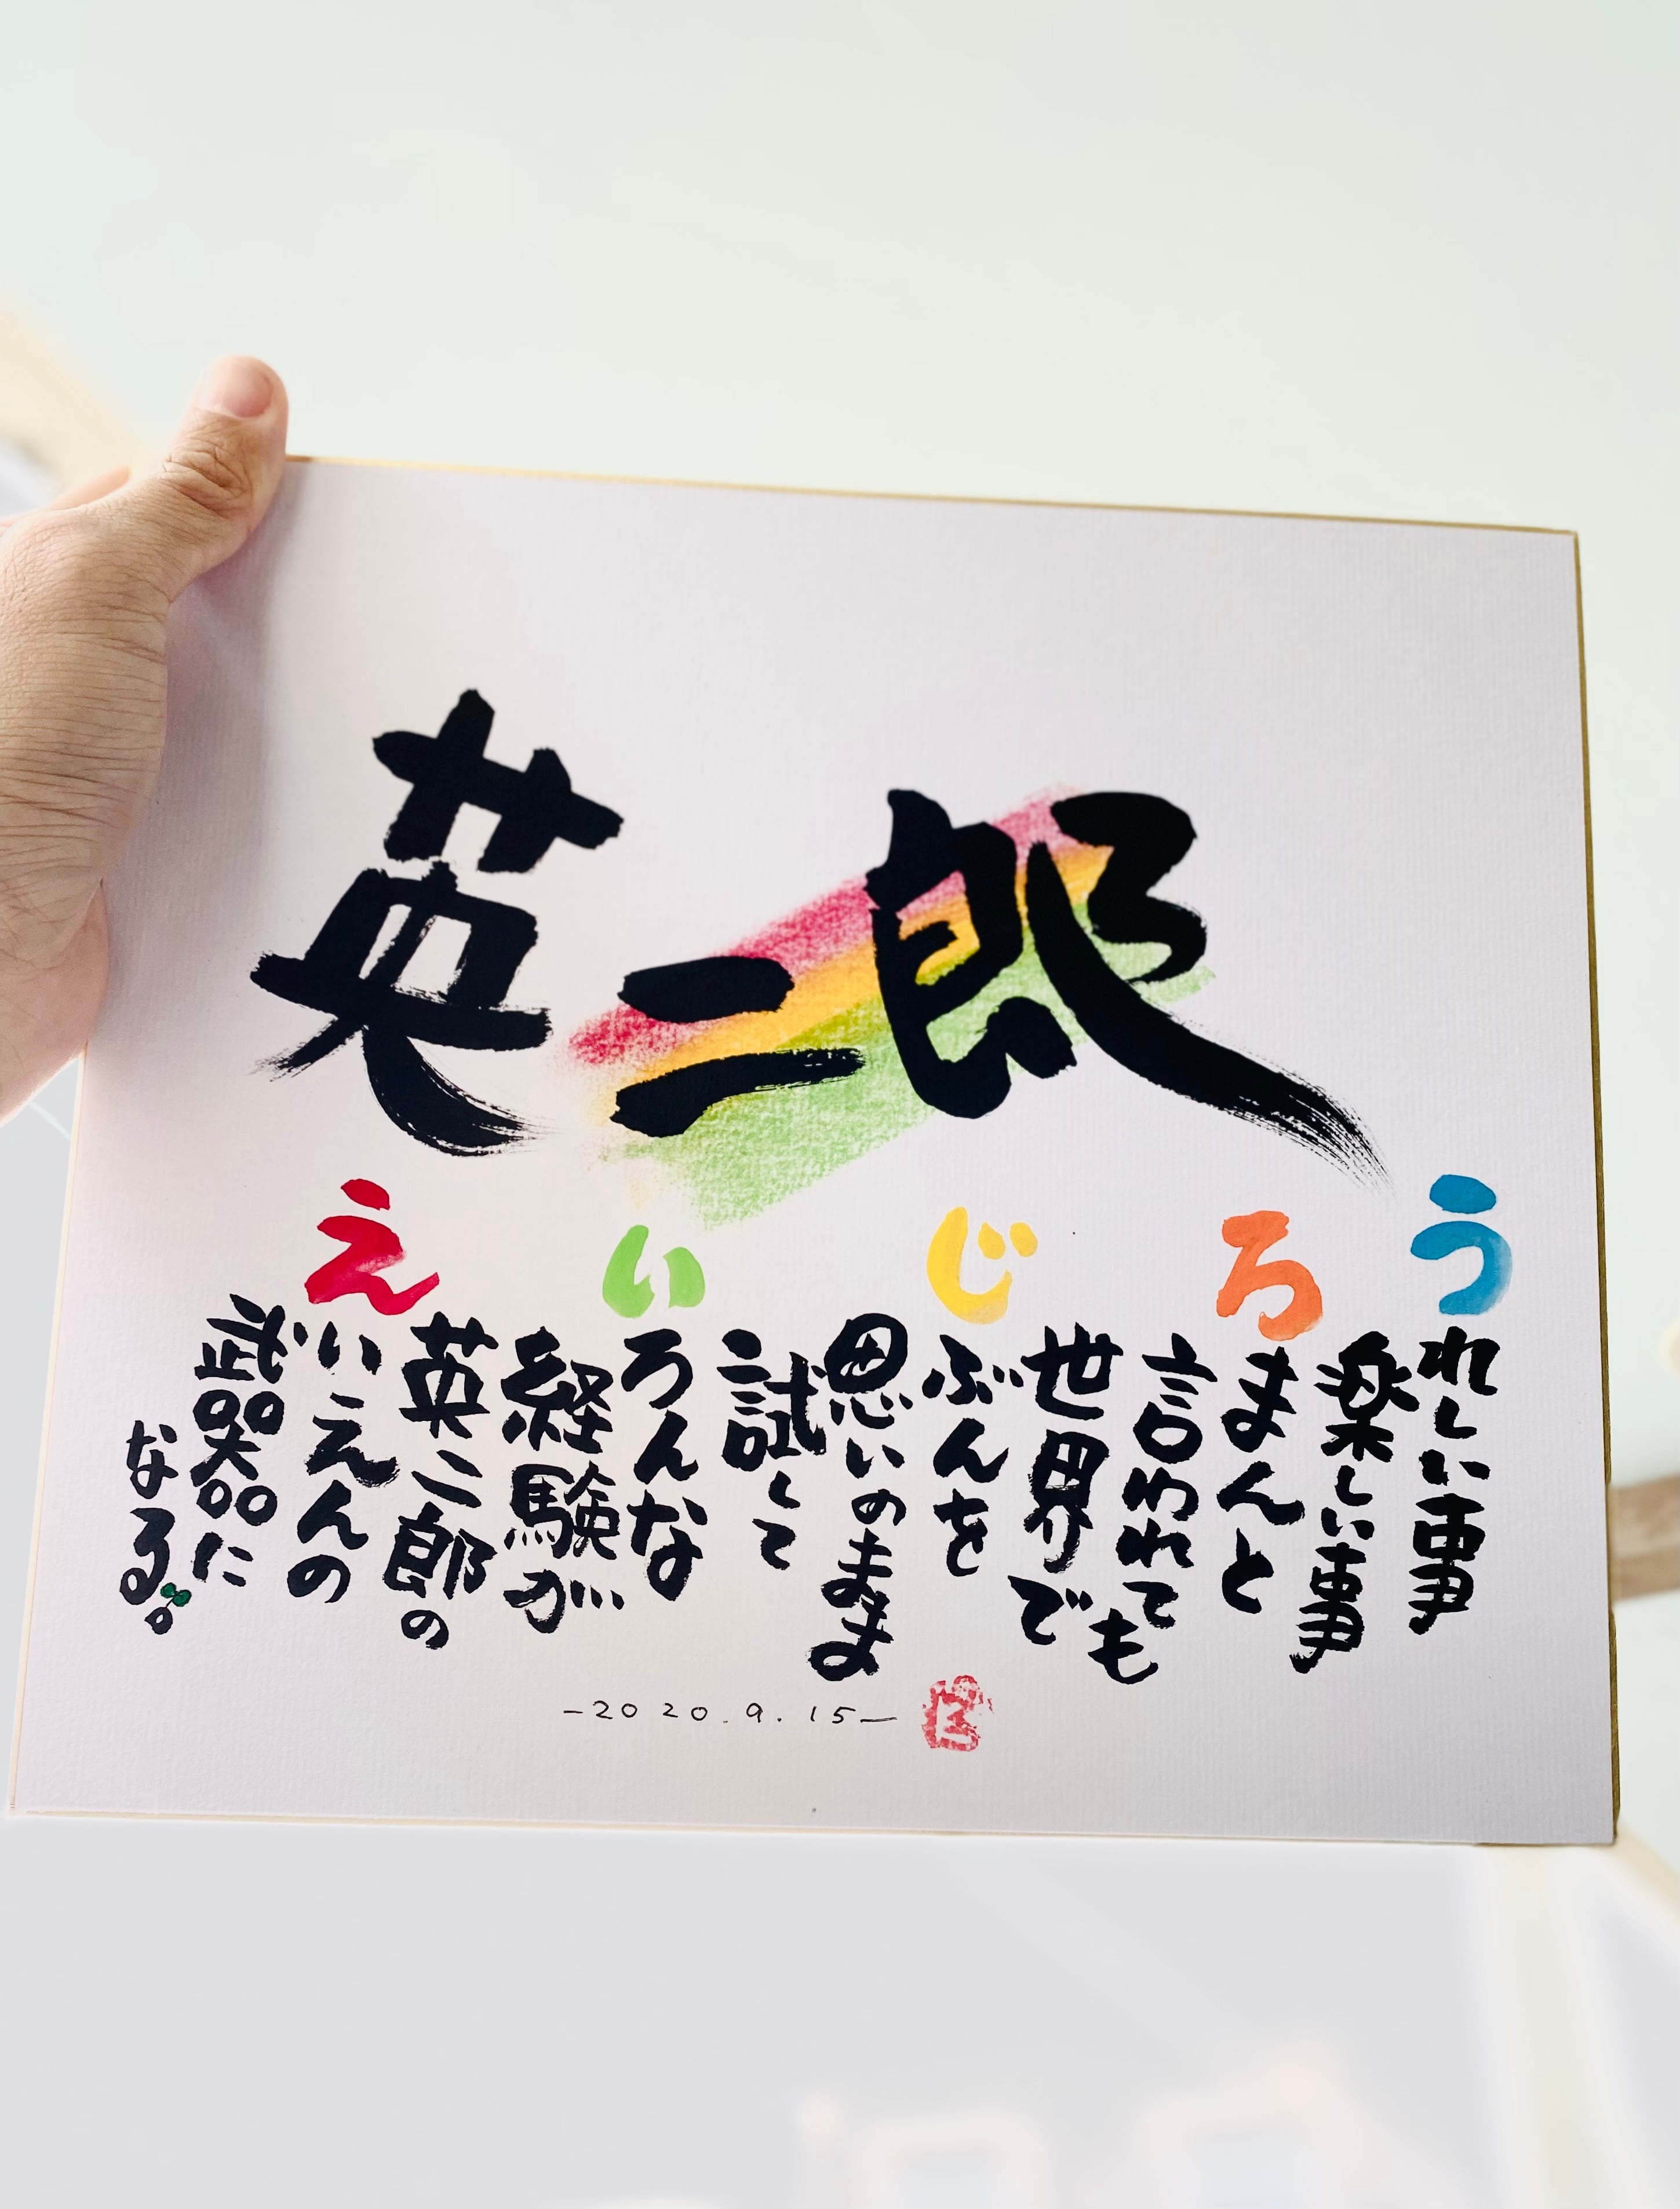 英二郎
うれしい事
楽しい事
ろまんと
言われても
世界で
じぶんを
思いのまま
試して
いろんな
経験が
英二郎の
えいえんの
武器に
なる。
-2020.9.15-